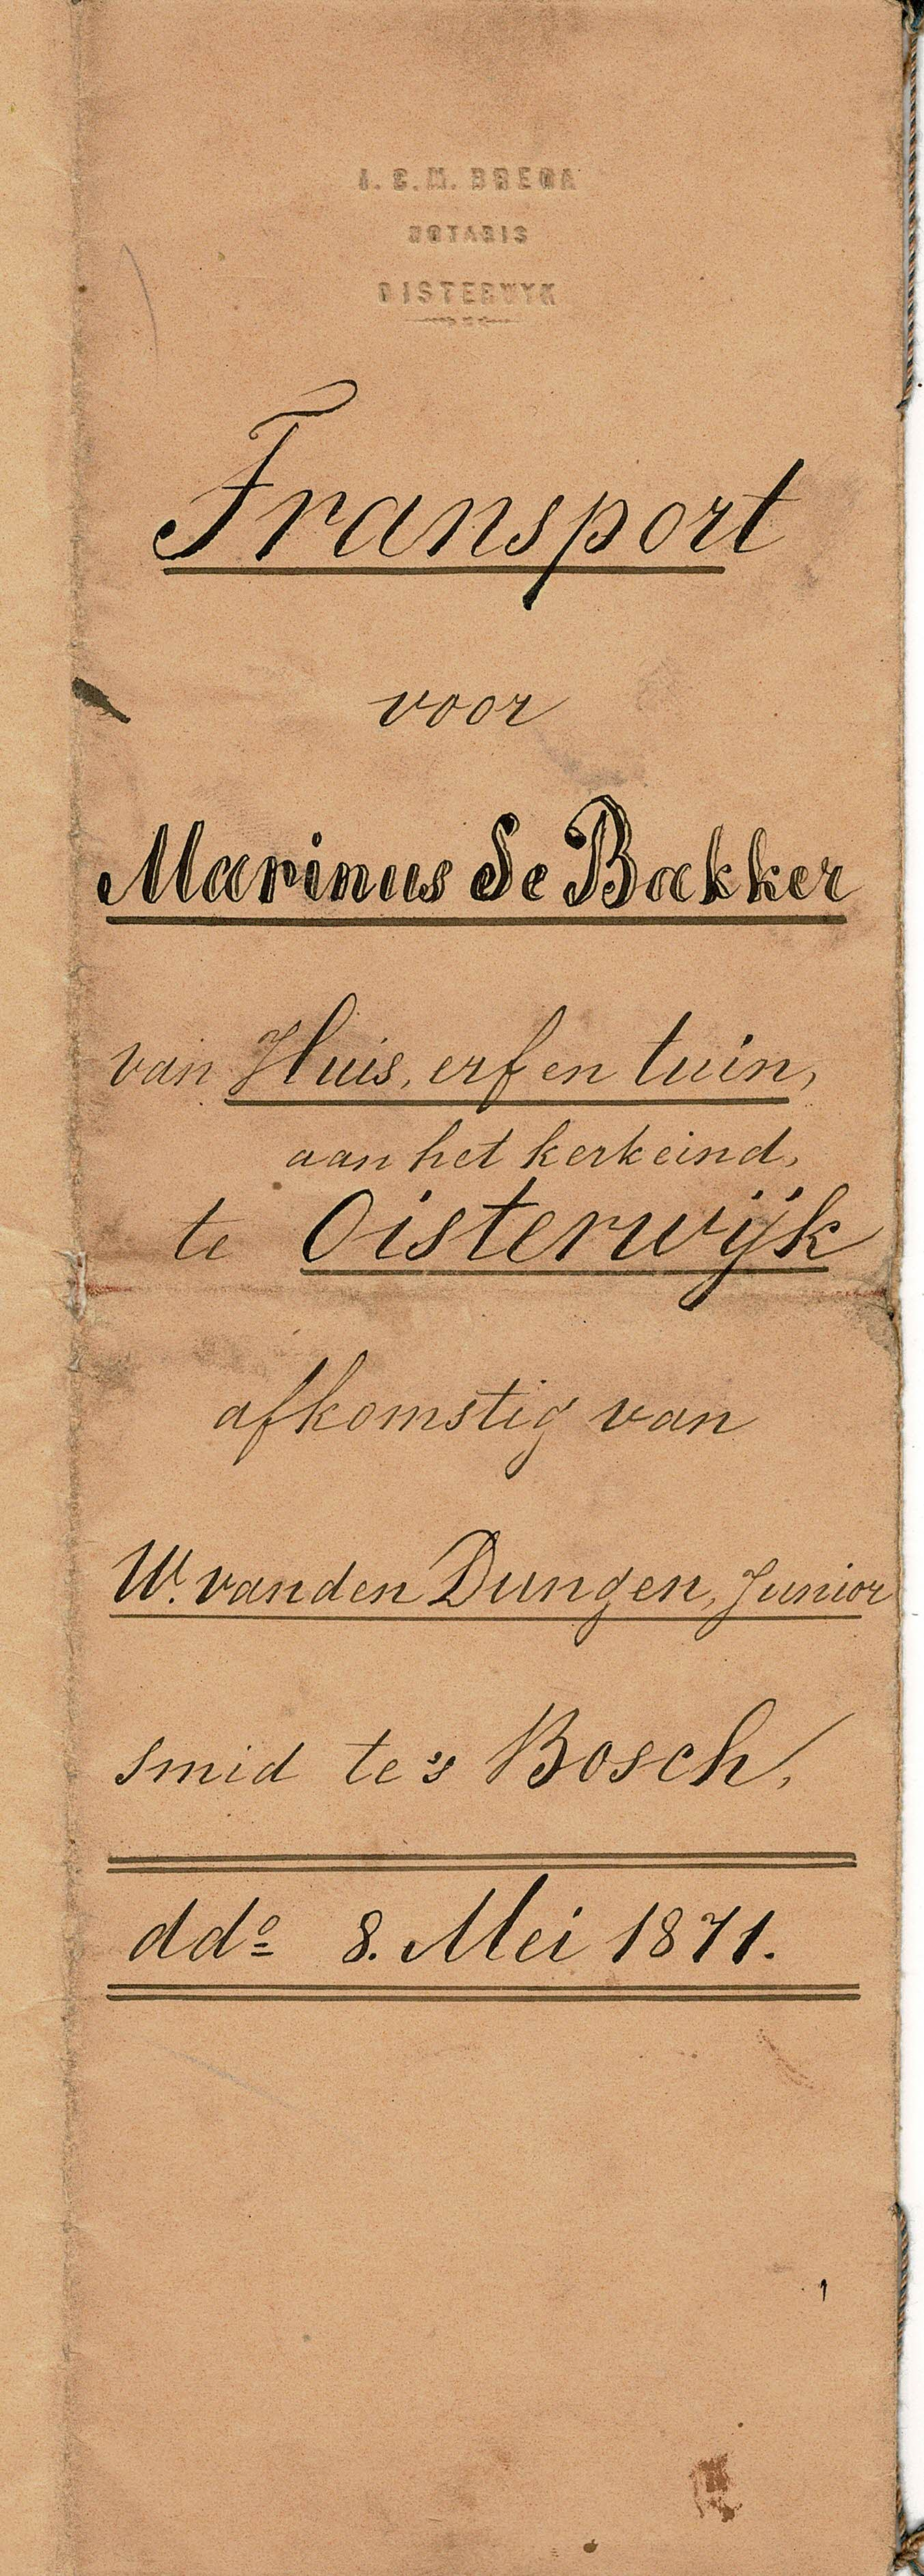 NOTARIS
OISTERWYK
Transport
voor
Marinus de Bakker
van Huis, erf en tuin,
aan het kerkeind,
te Oisterwijk
afkomstig van
W. van den Dungen, Junior
smid te 's Bosch,
ddo 8. Mei 1871.